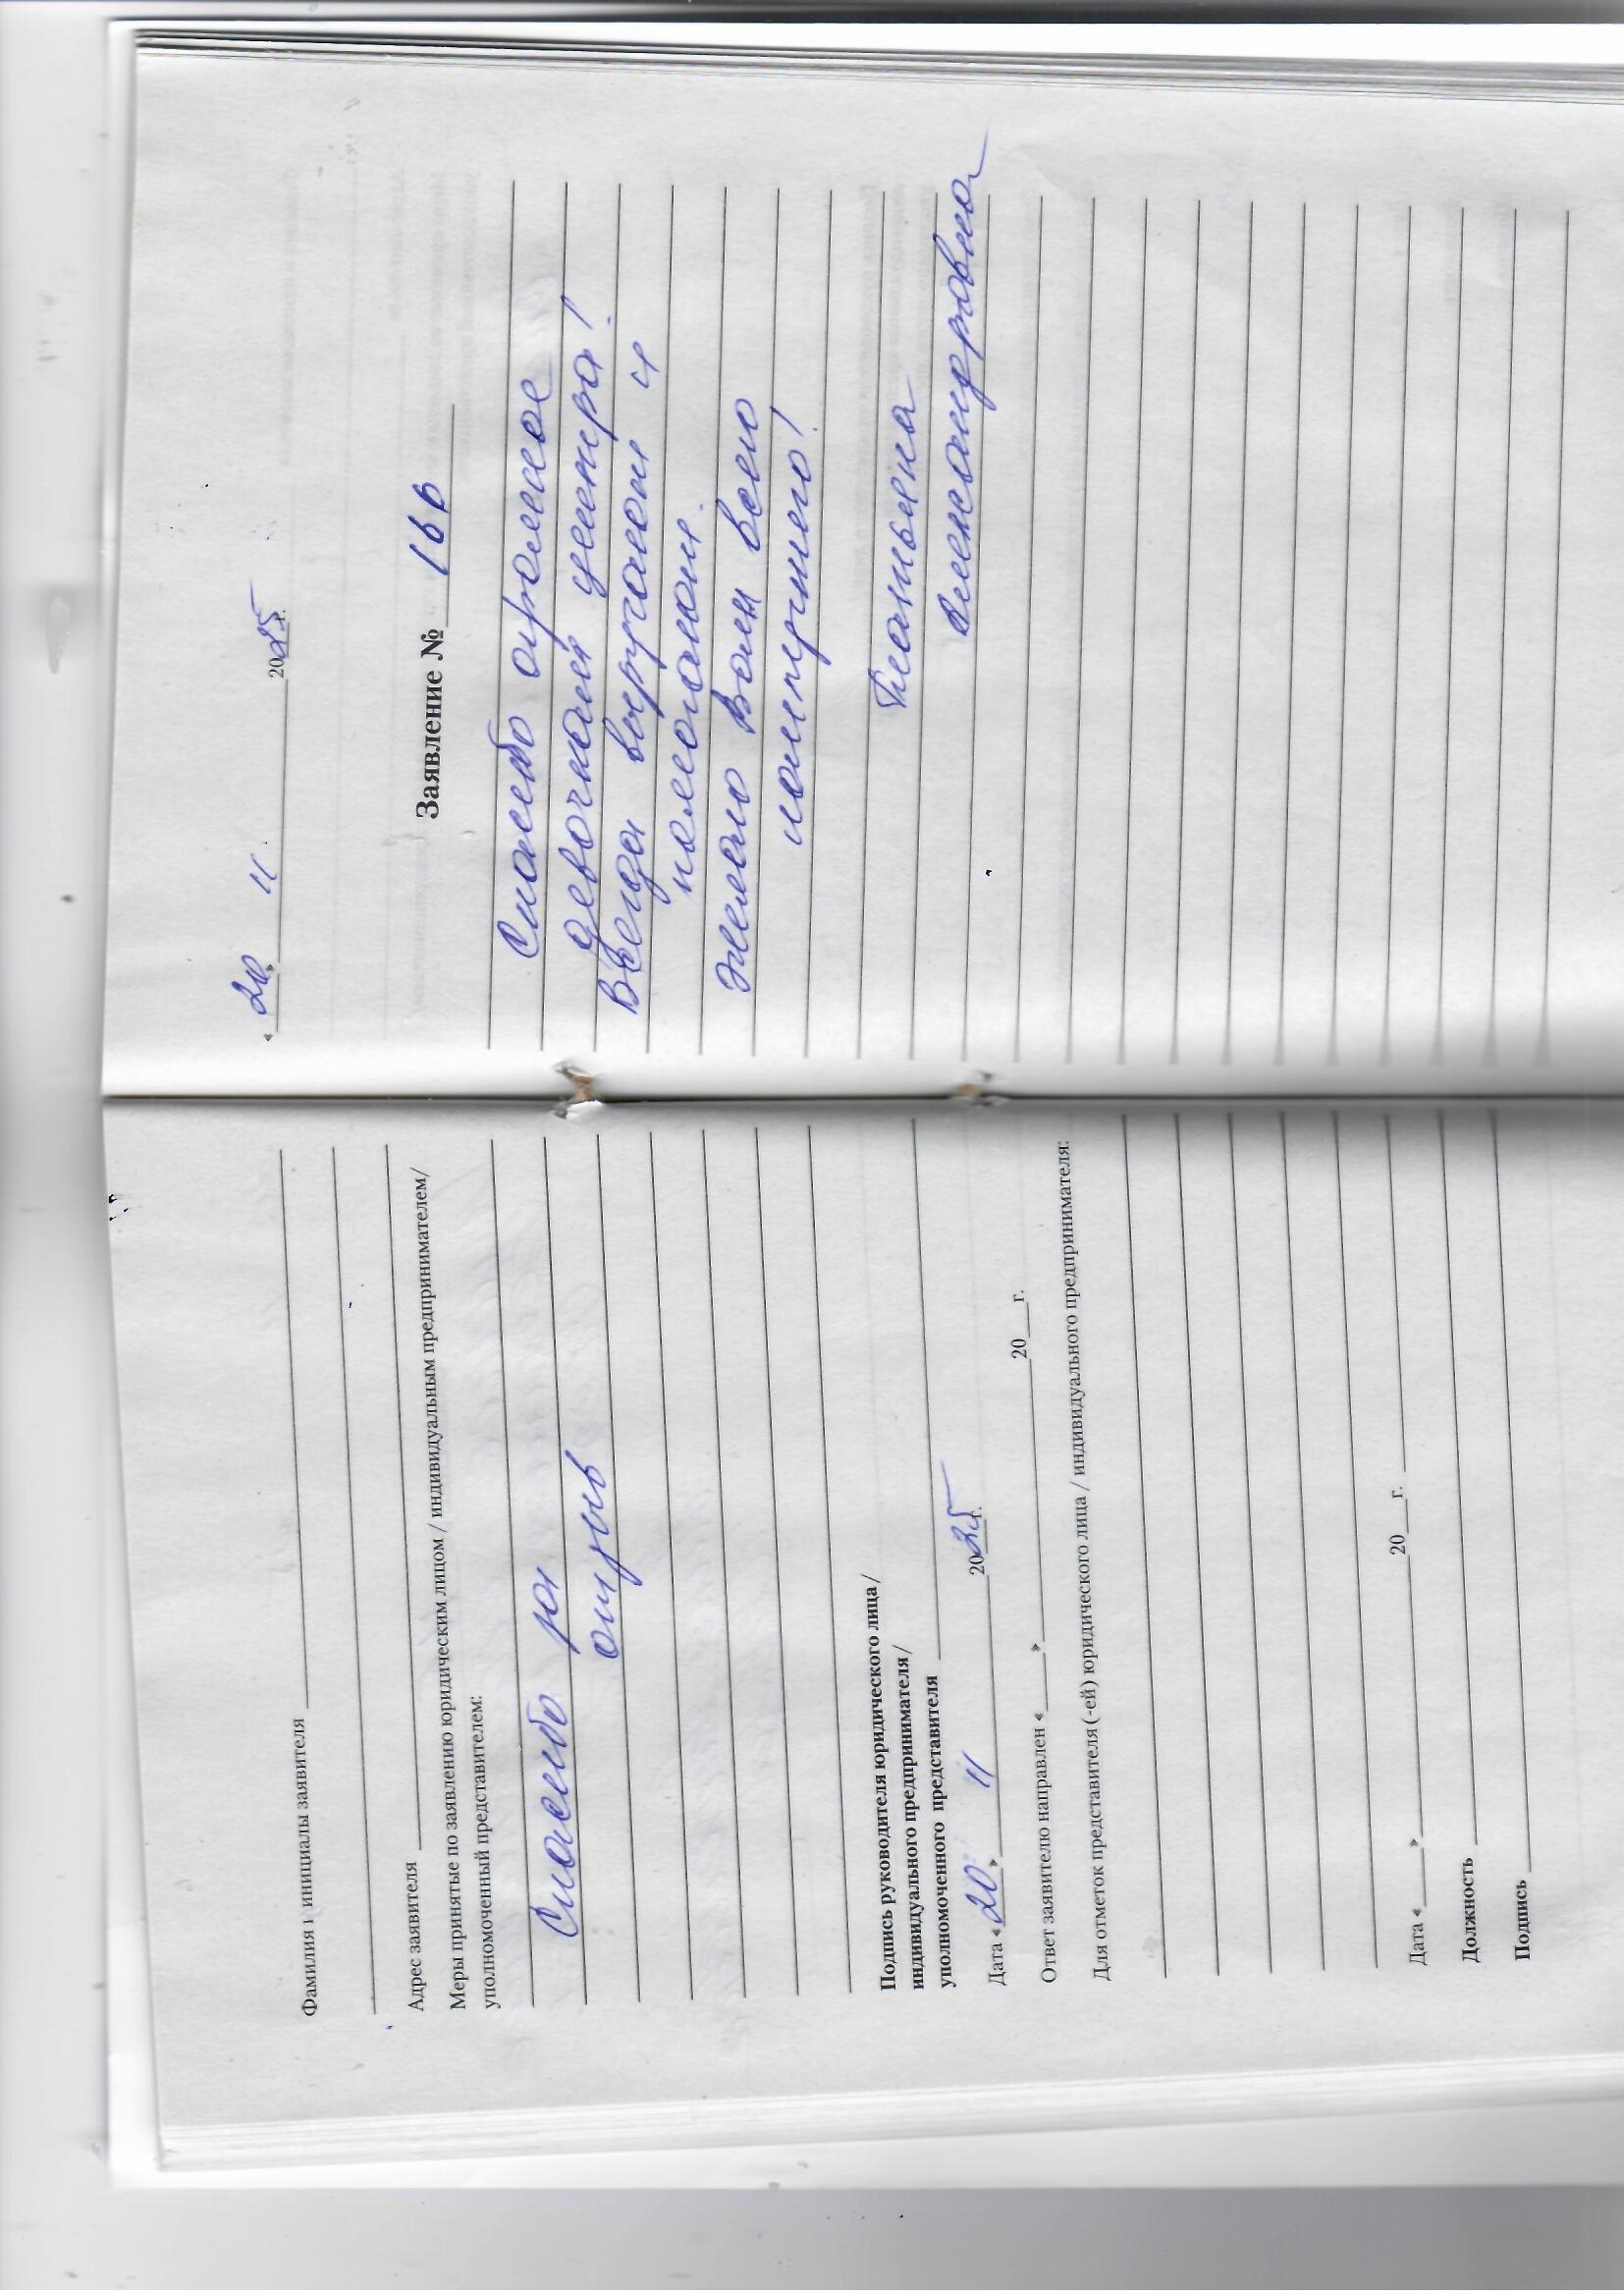 Фамилия и инициалы заявителя
Адрес заявителя
Меры принятые по заявлению юридическим лицом / индивидуальным предпринимателем/
уполномоченный представителем:
Спасибо за
отзыв
Подпись руководителя юридического лица/
индивидуального предпринимателя/
уполномоченного представителя
Дата «20» 11 2025г.
Ответ заявителю направлен «___»___ 20__г.
Для отметок представителя (-ей) юридического лица / индивидуального предпринимателя:
Дата «___»___ 20__г.
Должность
Подпись
«20» 11. 2025г.
Заявление № 166
Спасибо огромное
девочкам центра!
Всегда выручают и
помогают.
Желаю Вам всего
наилучшего!
Татьяна
Александровна